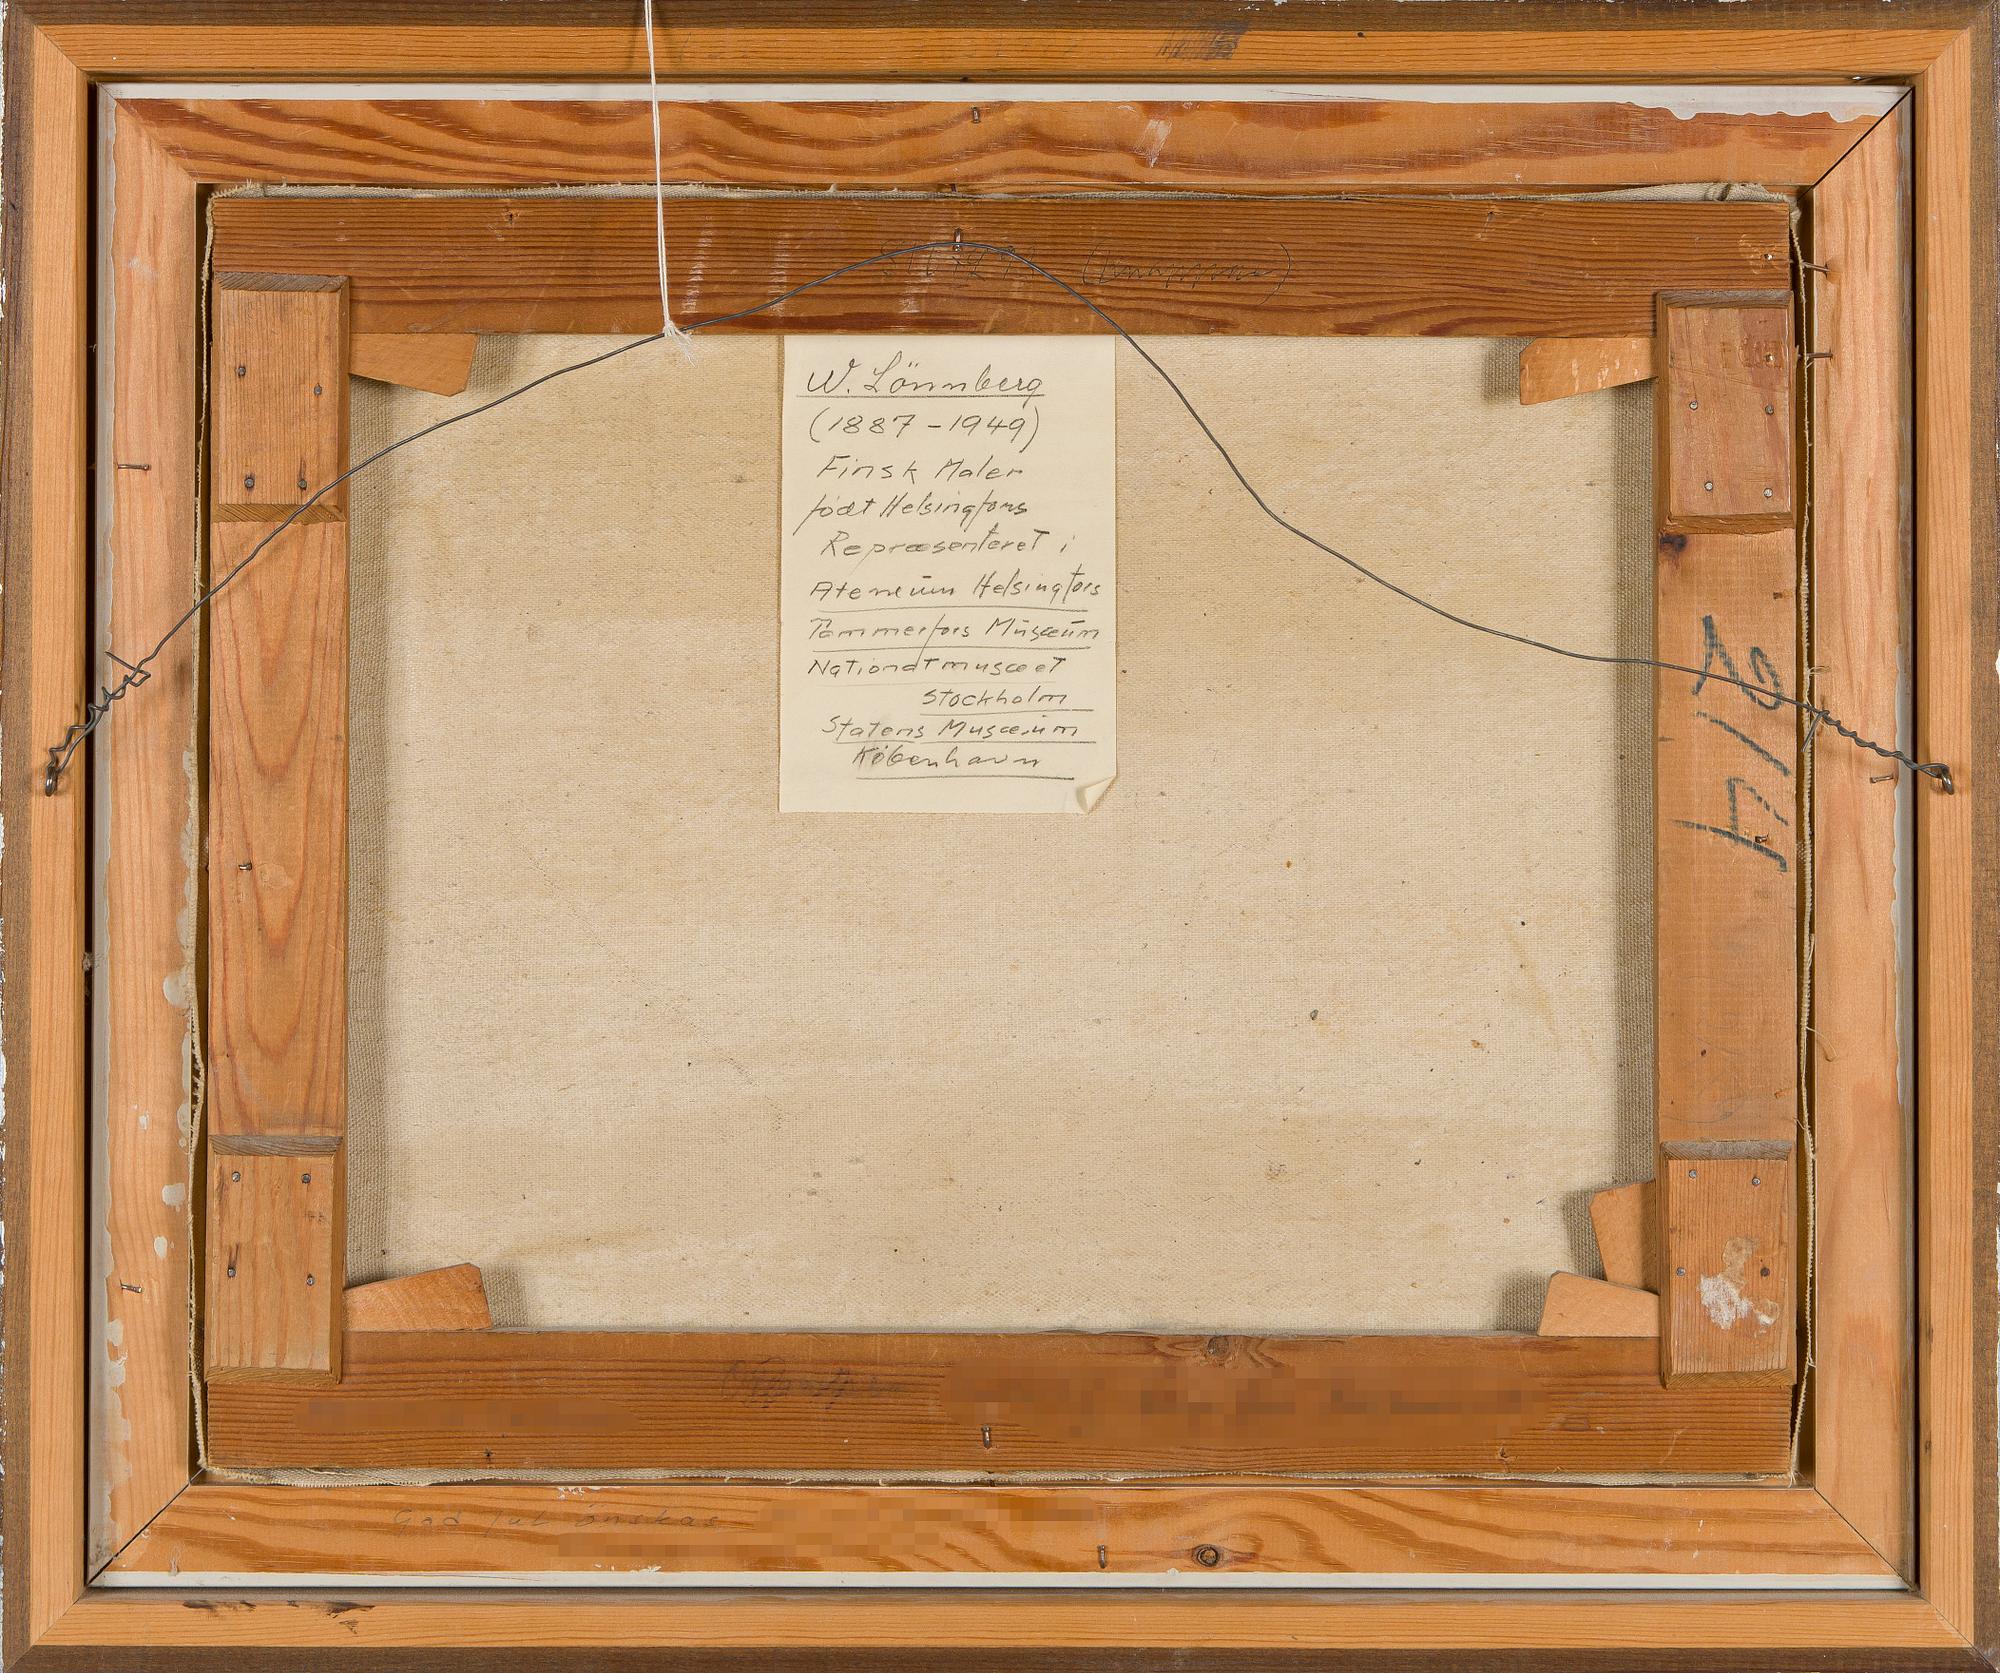 W. Lönnberg
(1887-1949)
Finsk Maler
født Helsingfors
Repræsenteret i
Ateneüm Helsingfors
Tammerfors Müsæüm
Nationatmusæet
Stockholm
Statens Musæüm
København
God Jul önskas